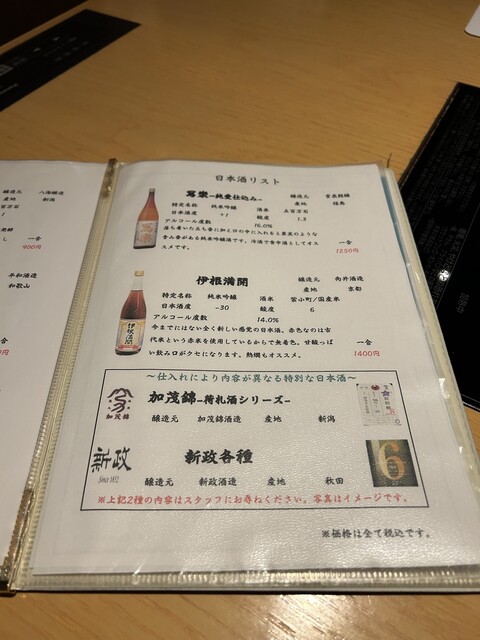 日本酒リスト
寫樂-純愛仕込み-
醸造元 宮泉銘醸
産地 福島
特定名称 純米吟醸 酒米 五百万石
日本酒度 +1 酸度 1.3
アルコール度数 16.0%
落ち着いた立ち香に加え口の中に入れると果実のような
含み香がある純米吟醸酒です。冷酒で食中酒としてオス
スメです。
一合
1250円
伊根満開
醸造元 向井酒造
産地 京都
特定名称 純米吟醸 酒米 雲小町/国産米
日本酒度 -30 酸度 6
アルコール度数 14.0%
今までにはない全く新しい感覚の日本酒。赤色なのは古
代米という赤米を使用しているからで無着色。甘酸っぱ
い飲み口がクセになります。熱燗もオススメ。
一合
1400円
～仕入れにより内容が異なる特別な日本酒～
加茂錦
加茂錦-荷札酒シリーズ-
醸造元 加茂錦酒造 産地 新潟
新政
Since 1852
新政各種
醸造元 新政酒造 産地 秋田
6
※上記2種の内容はスタッフにお尋ねください。写真はイメージです。
※価格は全て税込です。
醸造元 八海醸造
産地 新潟
百万石
一合
900円
平和酒造
和歌山
一合